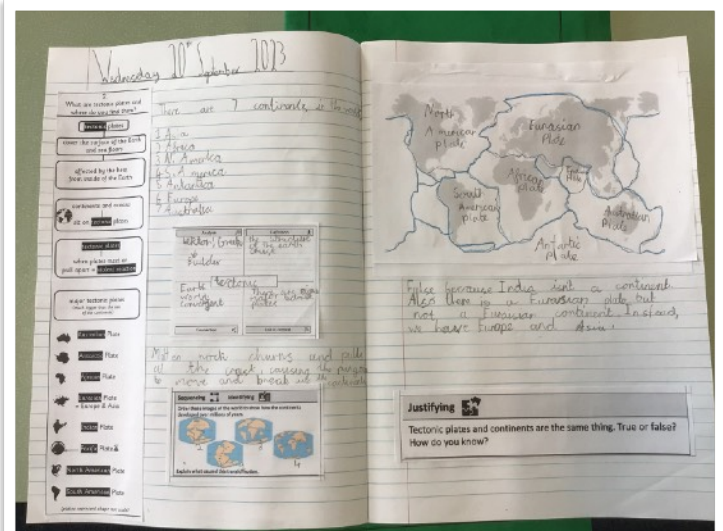 Wednesday 20th September 2023
What are tectonic plates and
where do you find them?
tectonic plates
cover the surface of the Earth
and sea floors
affected by the heat
from inside of the Earth
continents and oceans
sit on tectonic plates
tectonic plates
when plates meet or
pull apart =
major tectonic plates
Plate
Antarctic Plate
African Plate
Eurasian Plate
= Europe & Asia
Indian Plate
Pacific Plate
North American Plate
South American Plate
There are 7 continents in the world
1 Asia
2 Africa
3 N. America
4 S. America
5 Antarctica
6 Europe
7 Australia
Builder
of the earth
tectonic
Earth
world
convergent
plates
rock churns and pulls
at the crust, causing the
to move and break up the continents
Sequencing
Identifying
Order these images of the world to show how the continents
developed over millions of years.
Explain what caused this
North
American
plate
Eurasian
Plate
African
plate
South
American
plate
Australian
Plate
Antartic
Plate
False because India isn't a continent.
Also there is a Eurasian plate but
not a Eurasian continent. Instead,
we have Europe and Asia.
Justifying
Tectonic plates and continents are the same thing. True or false?
How do you know?